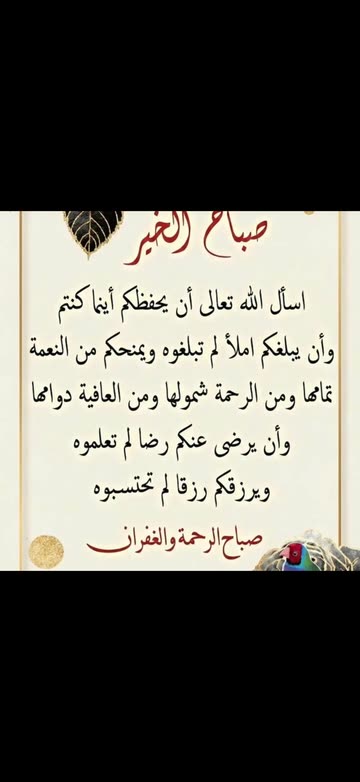 صباح الخير
اسأل الله تعالى أن يحفظكم أينما كنتم
وأن يبلغكم املاً لم تبلغوه ويمنحكم من النعمة
تمامها ومن الرحمة شمولها ومن العافية دوامها
وأن يرضى عنكم رضا لم تعلموه
ويرزقكم رزقا لم تحتسبوه
صباح الرحمة والغفران